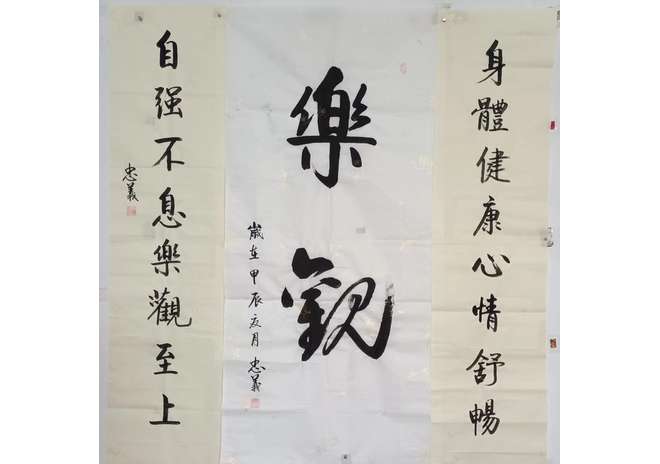 身體健康心情舒暢
樂觀
歲在甲辰夏月忠義
自强不息樂觀至上
忠義